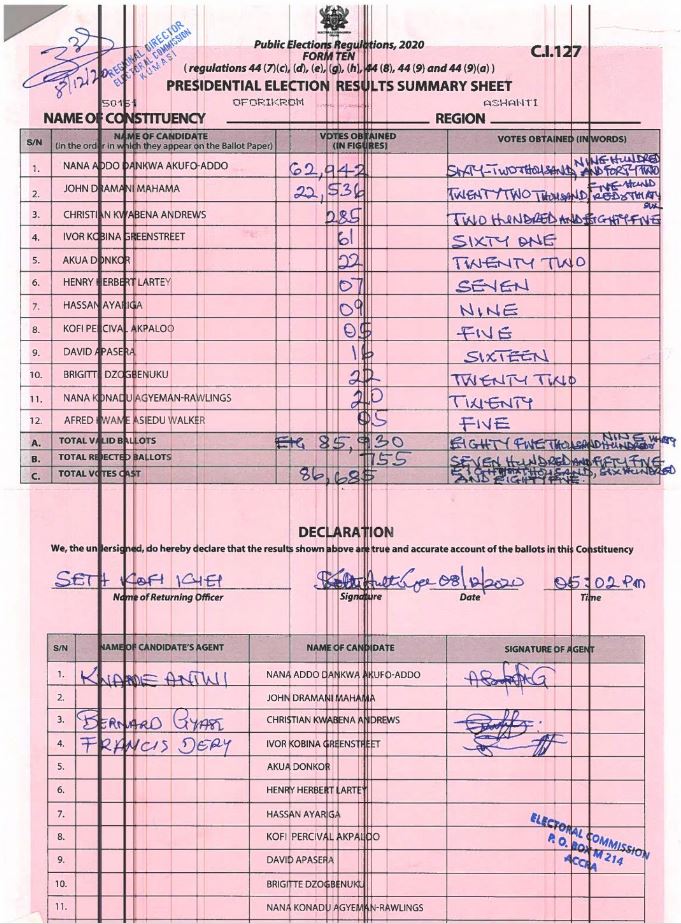 ELECTORAL COMMISSION
REGIONAL DIRECTOR
ELECTORAL COMMISSION
KUMASI
8/12/20
Public Elections Regulations, 2020
FORM TEN
C.I.127
( regulations 44 (7)(c), (d), (e), (g), (h), 44 (8), 44 (9) and 44 (9)(a) )
PRESIDENTIAL ELECTION RESULTS SUMMARY SHEET
OFORIKROM ASHANTI
NAME OF CONSTITUENCY REGION
S/N NAME OF CANDIDATE (in the order in which they appear on the Ballot Paper) VOTES OBTAINED (IN FIGURES) VOTES OBTAINED (IN WORDS)
1. NANA ADDO DANKWA AKUFO-ADDO 62,942 SIXTY-TWO THOUSAND, NINE HUNDRED AND FORTY TWO
2. JOHN DRAMANI MAHAMA 22,536 TWENTY TWO THOUSAND, FIVE HUNDREDS THIRTY SIX
3. CHRISTIAN KWABENA ANDREWS 285 TWO HUNDRED AND EIGHTY FIVE
4. IVOR KOBINA GREENSTREET 61 SIXTY ONE
5. AKUA DONKOR 22 TWENTY TWO
6. HENRY HERBERT LARTEY 07 SEVEN
7. HASSAN AYARIGA 09 NINE
8. KOFI PERCIVAL AKPALOO 05 FIVE
9. DAVID APASERA 16 SIXTEEN
10. BRIGITTE DZOGBENUKU 22 TWENTY TWO
11. NANA KONADU AGYEMAN-RAWLINGS 20 TWENTY
12. AFRED KWAME ASIEDU WALKER 05 FIVE
A. TOTAL VALID BALLOTS 85,930 EIGHTY FIVE THOUSAND NINE HUNDRED
B. TOTAL REJECTED BALLOTS 755 SEVEN HUNDRED AND FIFTY FIVE
C. TOTAL VOTES CAST 86,685 EIGHTY SIX THOUSAND, SIX HUNDRED AND EIGHTY FIVE.
DECLARATION
We, the undersigned, do hereby declare that the results shown above are true and accurate account of the ballots in this Constituency
SETH KOFI 08/12/2020 05:02 PM
Name of Returning Officer Signature Date Time
S/N NAME OF CANDIDATE'S AGENT NAME OF CANDIDATE SIGNATURE OF AGENT
1. KWAME ANTWI NANA ADDO DANKWA AKUFO-ADDO
2. JOHN DRAMANI MAHAMA
3. BERNARD GYASI CHRISTIAN KWABENA ANDREWS
4. FRANCIS DERY IVOR KOBINA GREENSTREET
5. AKUA DONKOR
6. HENRY HERBERT LARTEY
7. HASSAN AYARIGA
8. KOFI PERCIVAL AKPALOO
9. DAVID APASERA
10. BRIGITTE DZOGBENUKU
11. NANA KONADU AGYEMAN-RAWLINGS
ELECTORAL COMMISSION
P. O. BOX M 214
ACCRA